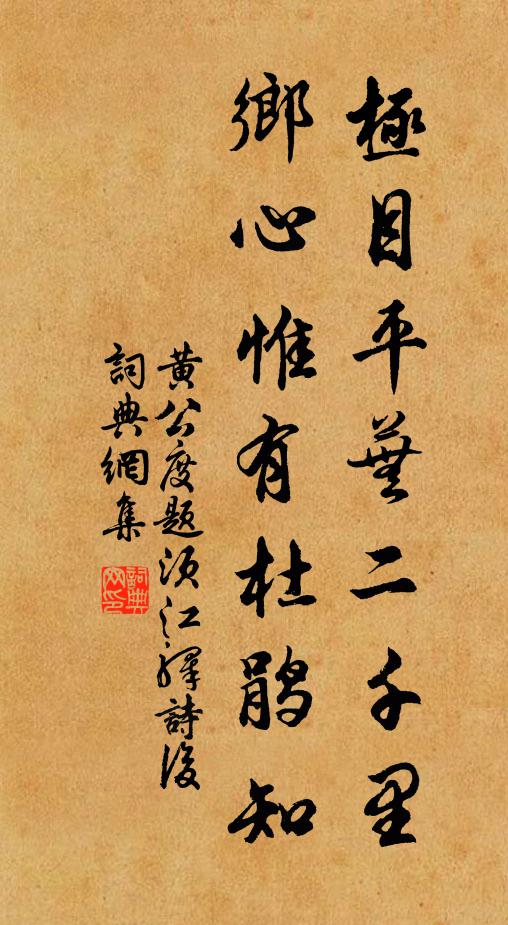 極目平蕪二千里
鄉心惟有杜鹃知
黄公度題须江驛詩後
詞典網集
詞典网印